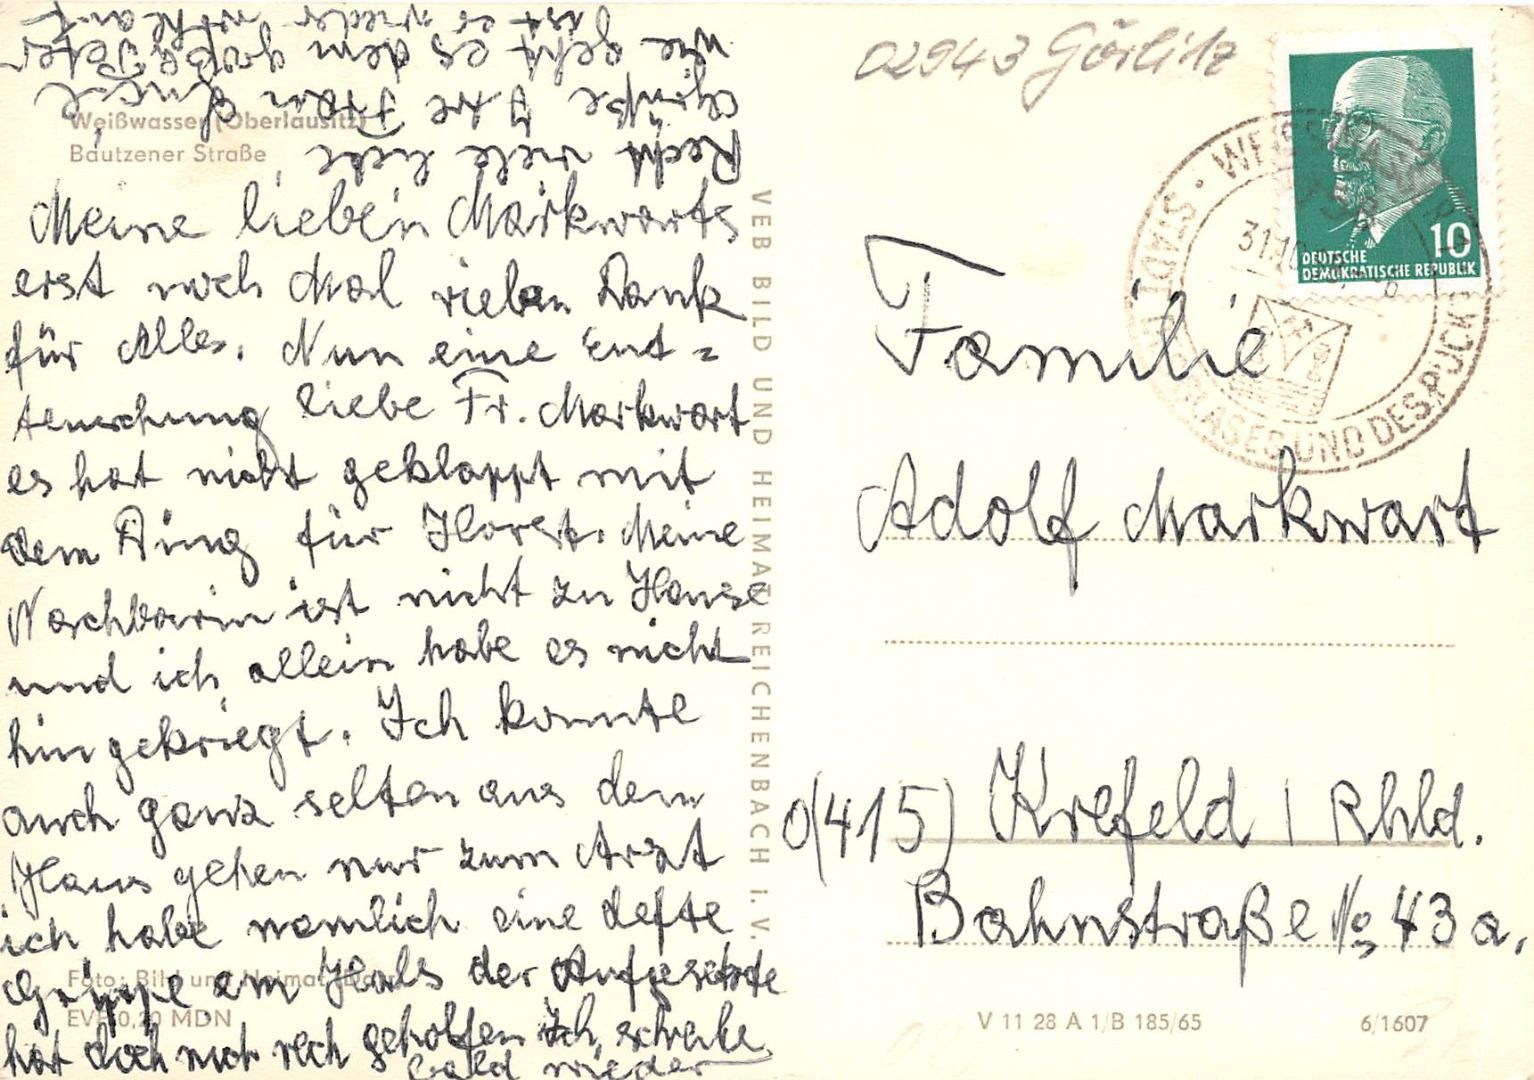 Weißwasser (Oberlausitz)
Bautzener Straße
Meine lieben Markwarts
erst noch Mal vielen Dank
für Alles. Nun eine Ent=
teuschung liebe Fr. Markwart
es hat nicht geklappt mit
dem Ding für Horst. Meine
Nachbarin ist nicht zu Hause
und ich allein habe es nicht
hingekriegt. Ich konnte
auch ganz selten aus dem
Haus gehen nur zum Arzt
ich habe nämlich eine defte
Grippe am Hals der Aufgesetzte
hat doch nich rech geholfen Ich schreibe
bald wieder
Recht viele liebe
Grüße Ihre Frau
wie geht es dem große Peter
ist es wieder
Foto: Bild und Heimat
EVP 0,20 MDN
VEB BILD UND HEIMAT REICHENBACH I. V.
02943 Görlitz
DEUTSCHE
DEMOKRATISCHE REPUBLIK
10
WEISSWASSER
STADT DES GLASES UND DES
31.10.
Familie
Adolf Markwart
(415) Krefeld / Rhld.
Bahnstraße No 43 a.
V 11 28 A 1/B 185/65
6/1607